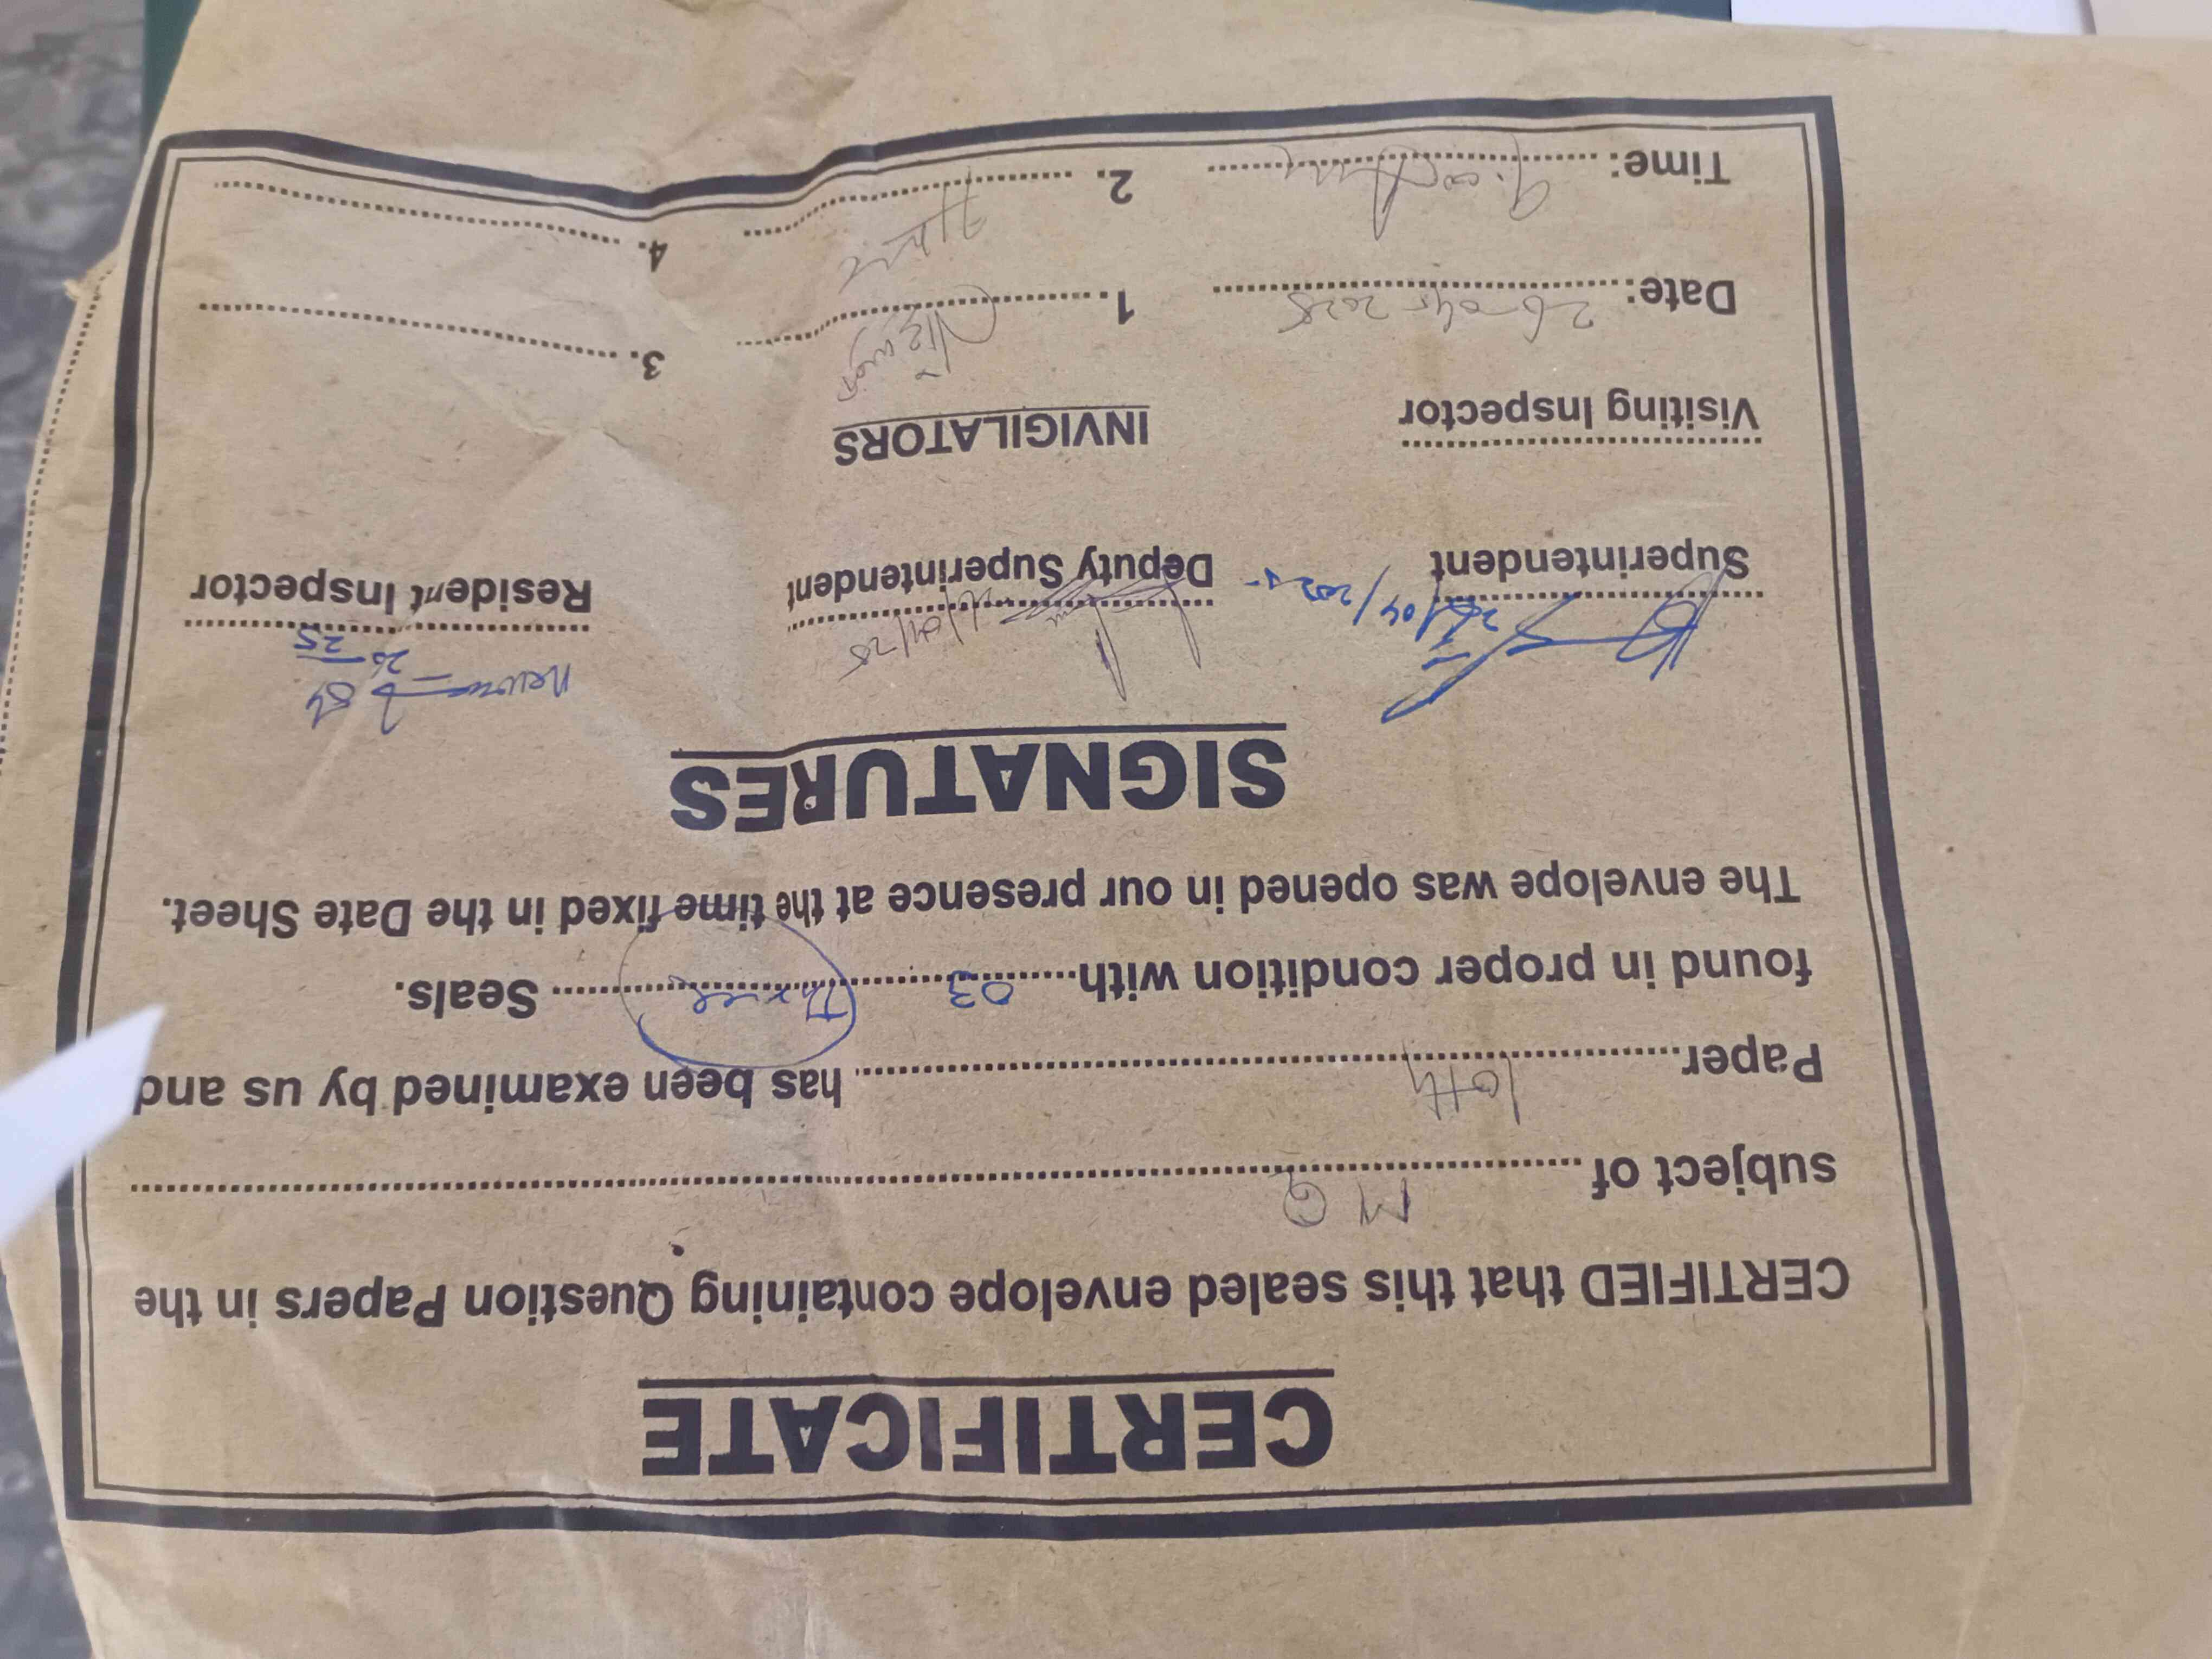 CERTIFICATE
CERTIFIED that this sealed envelope containing Question Papers in the
subject of .......... M Q ..........
Paper .......... 10th .......... has been examined by us and
found in proper condition with .......... 03 (Three) .......... Seals.
The envelope was opened in our presence at the time fixed in the Date Sheet.
SIGNATURES
26/04/2025 26/04/25
Superintendent Deputy Superintendent Resident Inspector
Visiting Inspector INVIGILATORS
Date: 26-04-2025 1. .......... 3. ..........
Time: 9:00 2. .......... 4. ..........